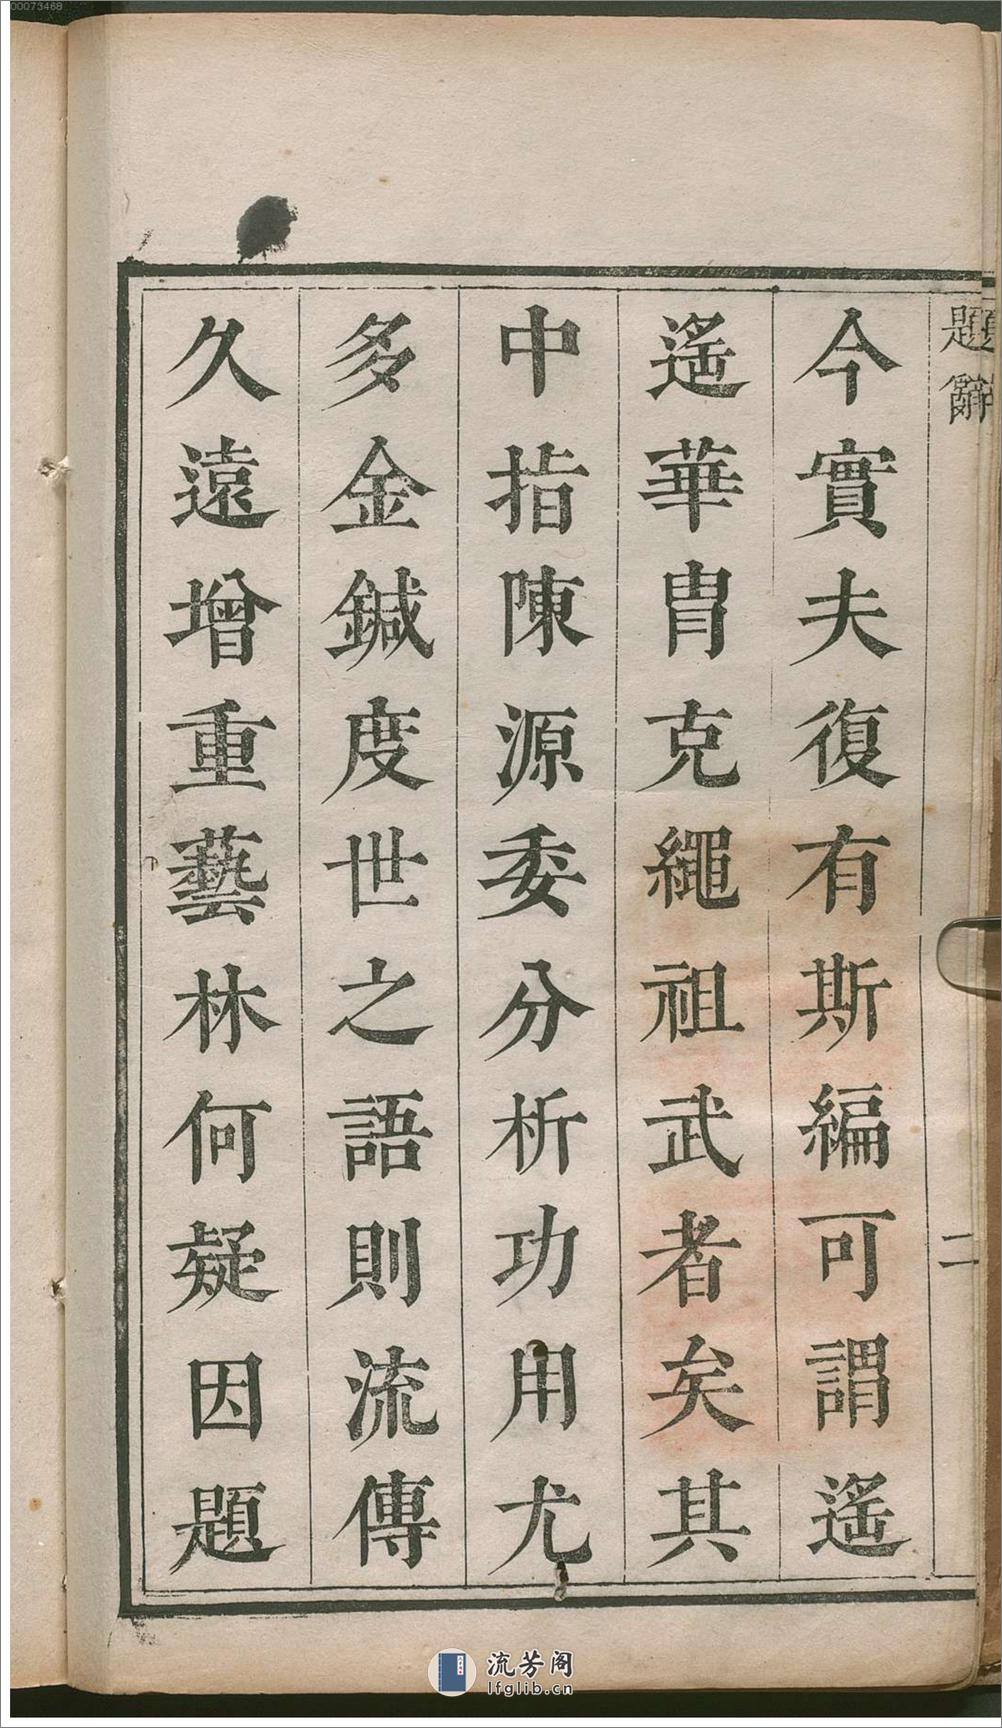 題辭
二
今實夫復有斯編可謂遙
遙華胄克繩祖武者矣其
中指陳源委分析功用尤
多金鍼度世之語則流傳
久遠增重藝林何疑因題
00073468
流芳阁
lfglib.cn